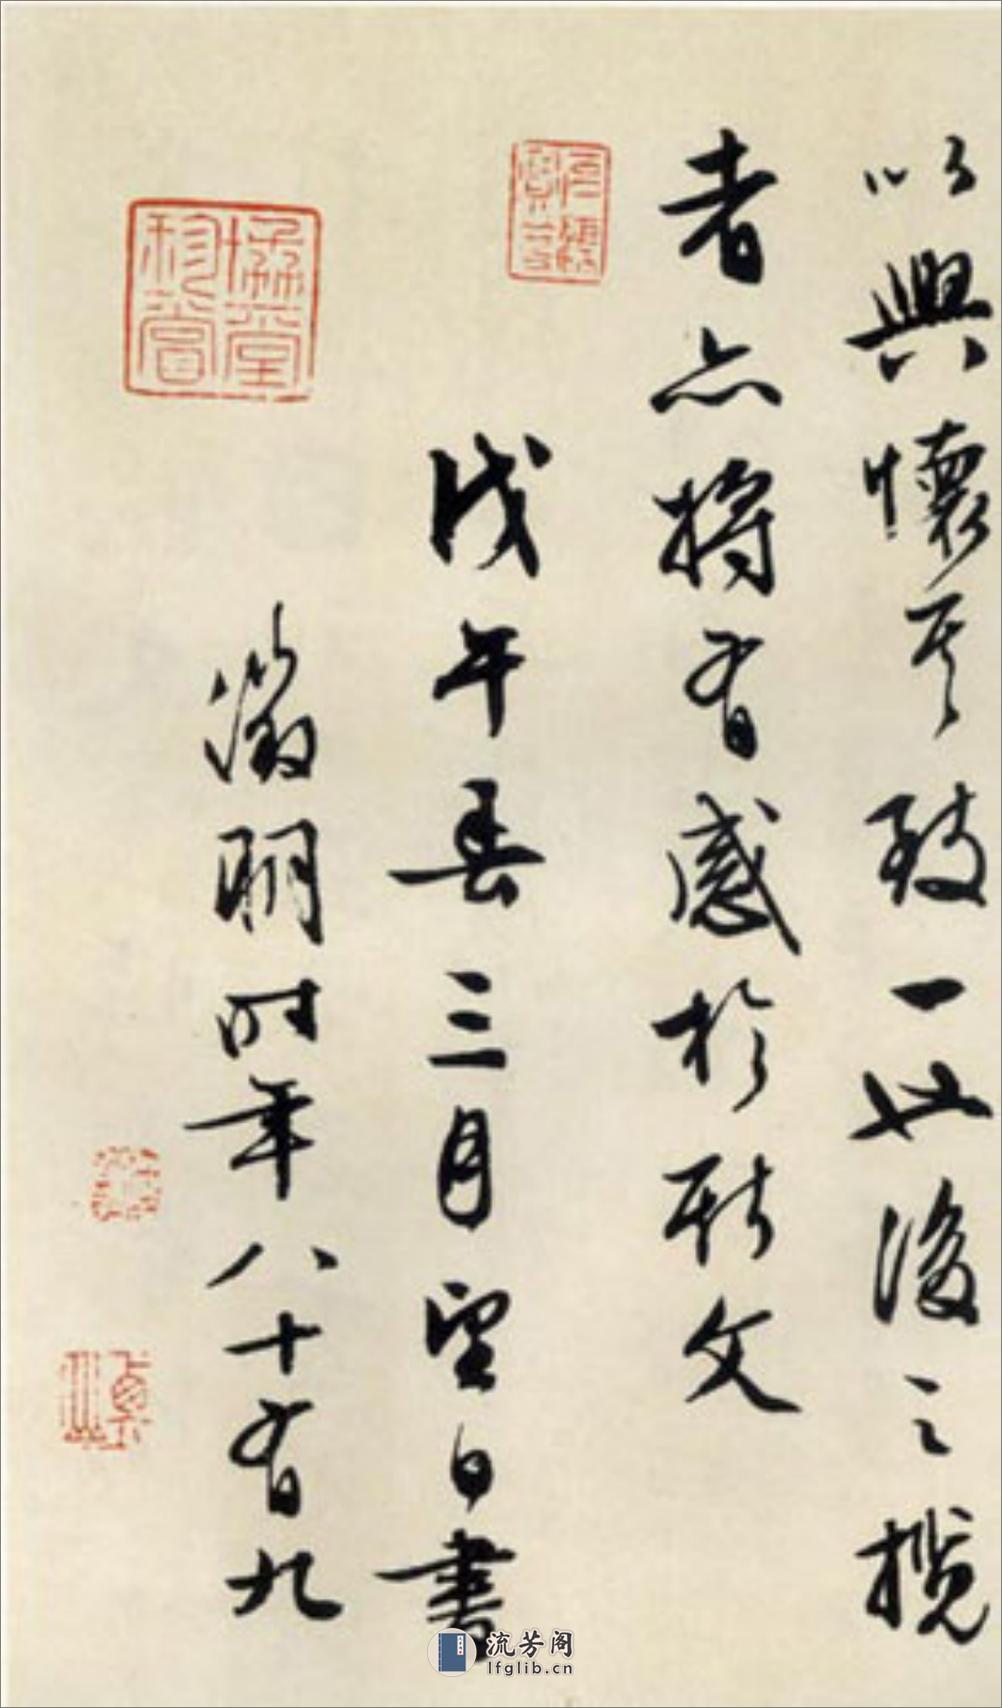 以興懷其致一也後之攬
者亦將有感於斯文
戊午春三月望日書
徵明時年八十有九
協堂
珍賞
流芳阁
lfglib.cn